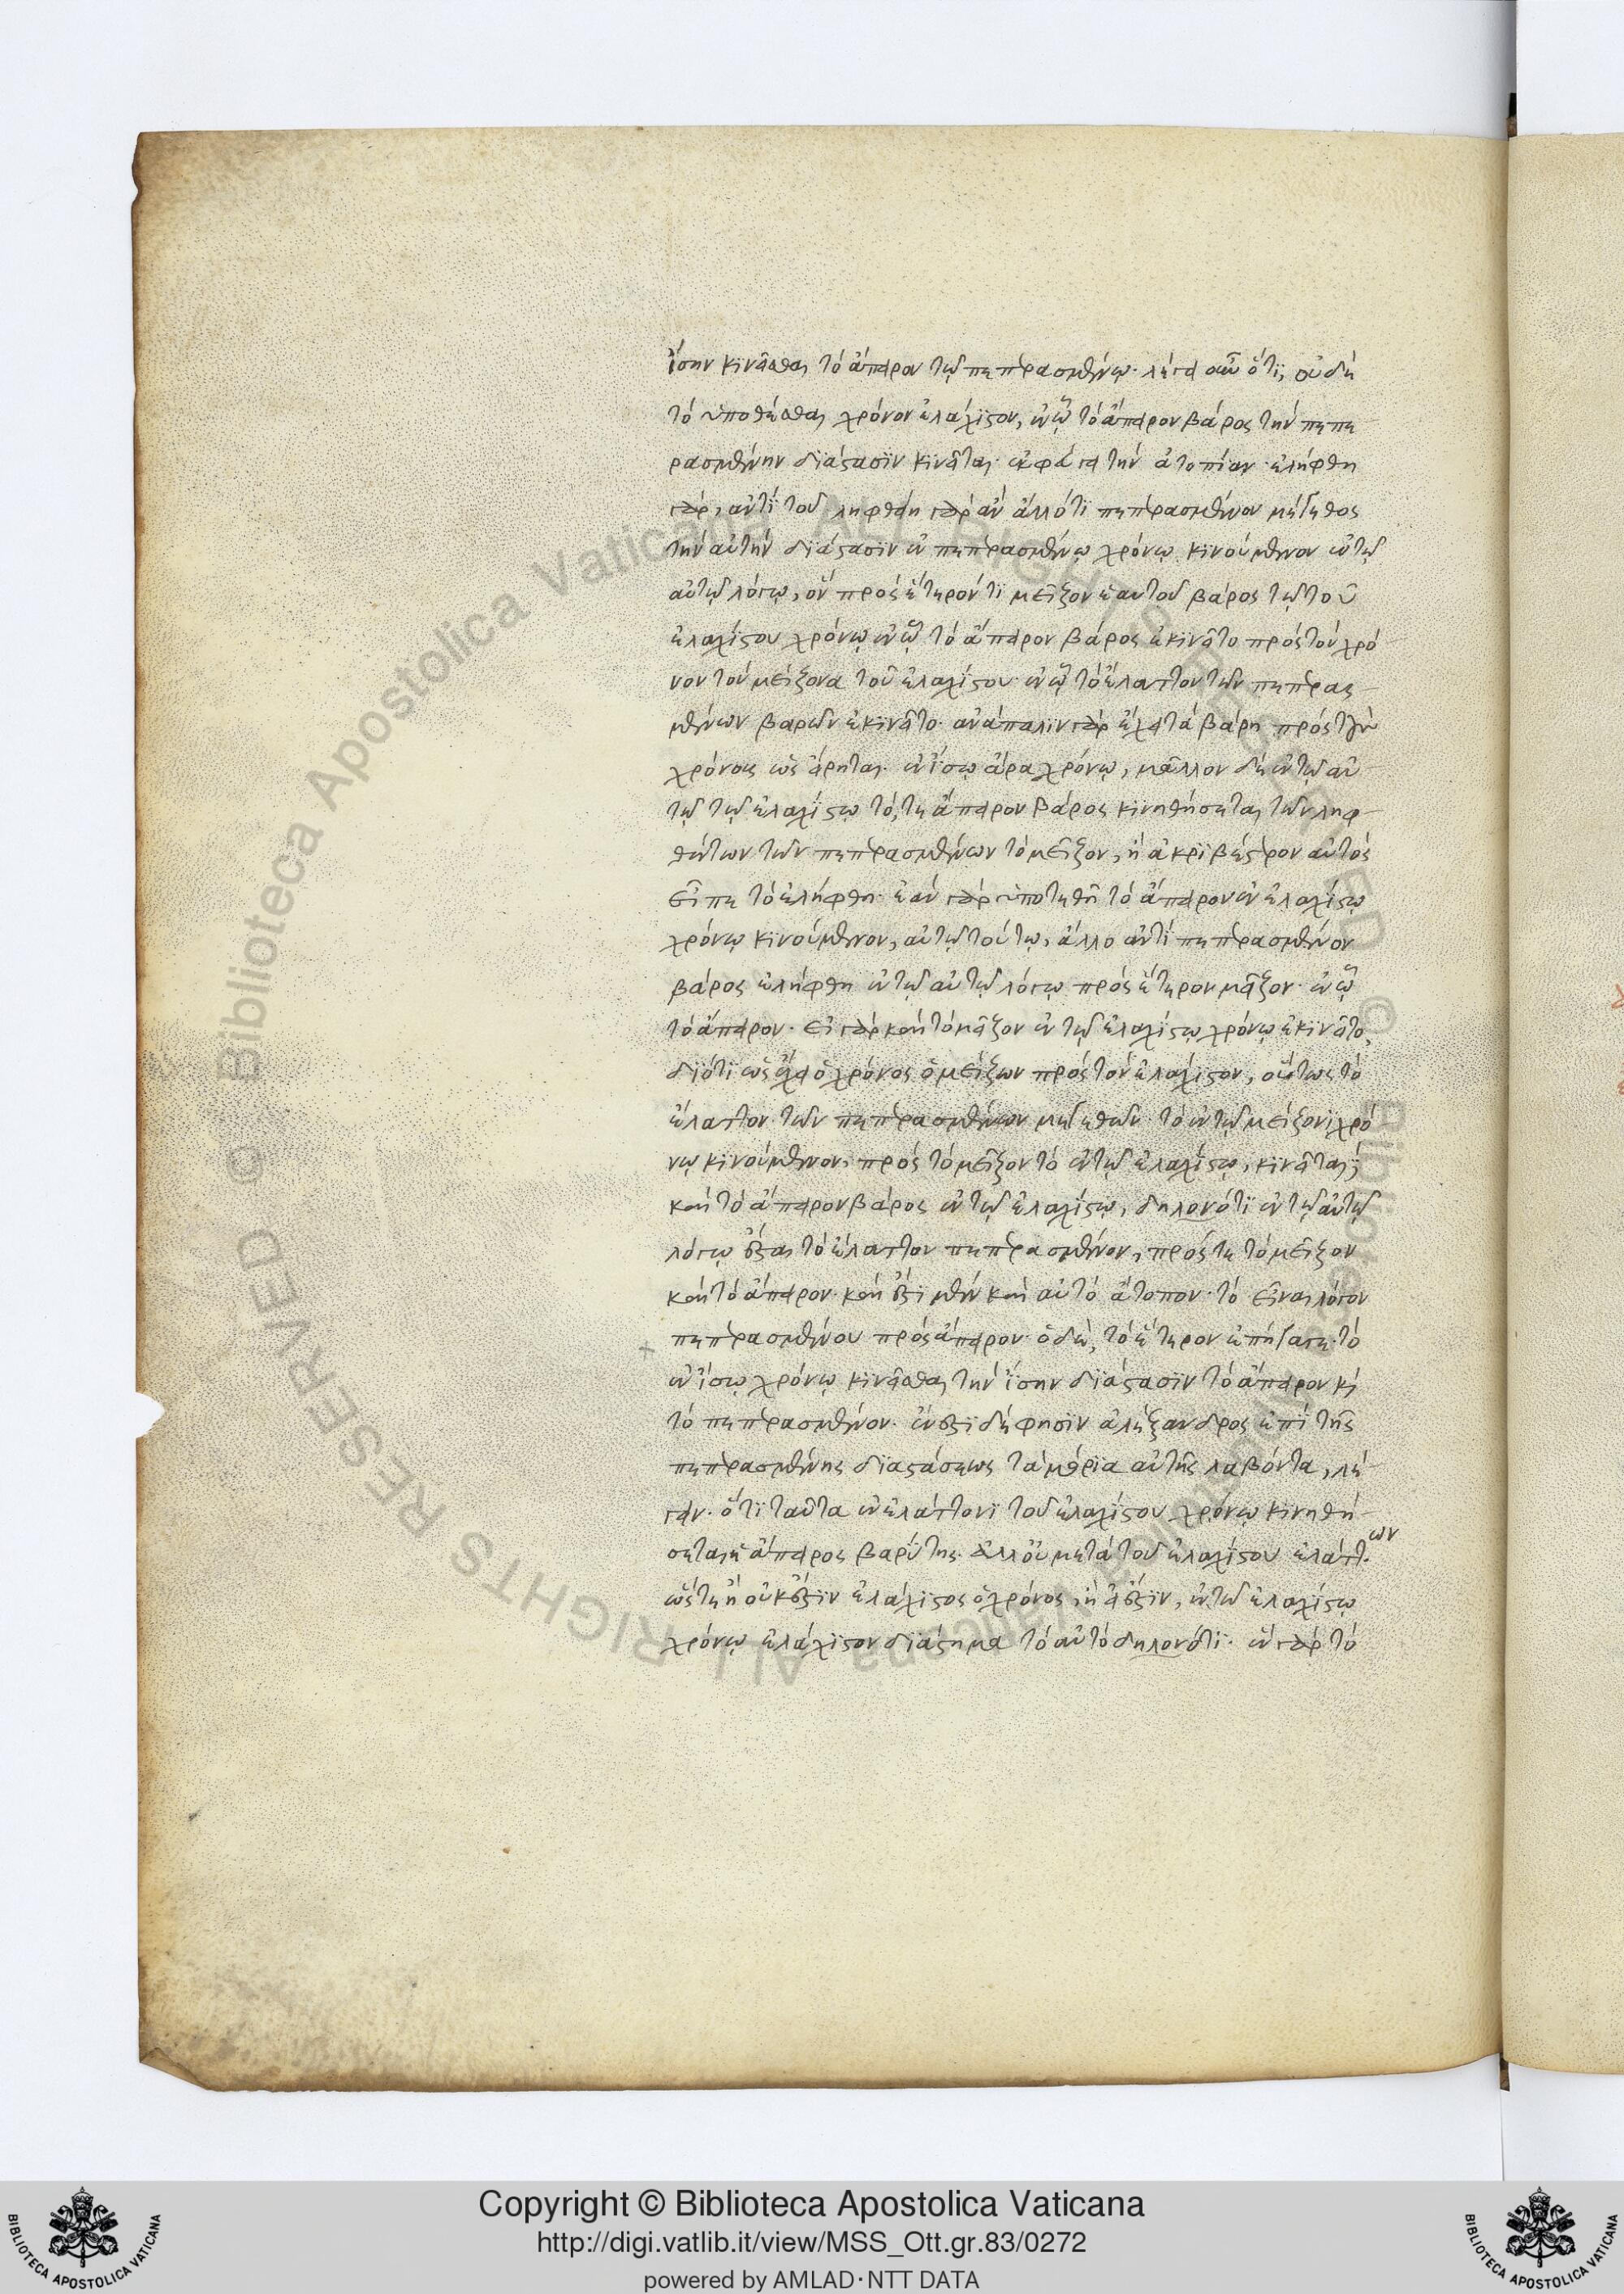 ἴσην κινεῖσθαι τὸ ἄπειρον τῷ πεπερασμένῳ. λέγει οὖν ὅτι, οὐδὲ
τὸ ὑποθέσθαι χρόνον ἐλάχιστον, ἐν ᾧ τὸ ἄπειρον βάρος τὴν πεπε
ρασμένην διάστασιν κινεῖται. ἐκφεύγει τὴν ἀτοπίαν. ἐλήφθη
γὰρ, ἀντὶ τοῦ ληφθείη γὰρ ἂν ἄλλό τι πεπερασμένον μέγεθος
τὴν αὐτὴν διάστασιν ἐν πεπερασμένῳ χρόνῳ κινούμενον ἐν τῷ
αὐτῷ λόγῳ, ὂν πρὸς ἕτερόν τι μεῖζον ἑαυτοῦ βάρος τῷ τοῦ
ἐλαχίστου χρόνῳ ἐν ᾧ τὸ ἄπειρον βάρος ἐκινεῖτο πρὸς τὸν χρό
νον τὸν μείζονα τοῦ ἐλαχίστου ἐν ᾧ τὸ ἔλαττον τῶν πεπερασ
μένων βαρῶν ἐκινεῖτο. ἀνάπαλιν γὰρ ἔχει τὰ βάρη πρὸς τοὺς
χρόνους ὡς εἴρηται. ἐν ἴσῳ ἄρα χρόνῳ, μᾶλλον δὲ ἐν τῷ αὐ
τῷ τῷ ἐλαχίστῳ τό, τε ἄπειρον βάρος κινηθήσεται τῶν ληφ
θέντων τῶν πεπερασμένων τὸ μεῖζον, ἢ ἀκριβέστερον αὐτὸς
εἶπε τὸ ἐλήφθη. ἐὰν γὰρ ὑποτεθῇ τὸ ἄπειρον ἐν ἐλαχίστῳ
χρόνῳ κινούμενον, αὐτῷ τούτῳ, ἄλλο ἀντὶ πεπερασμένον
βάρος ἐλήφθη ἐν τῷ αὐτῷ λόγῳ πρὸς ἕτερον μεῖζον. ἐν ᾧ
τὸ ἄπειρον. εἰ γὰρ καὶ τὸ μεῖζον ἐν τῷ ἐλαχίστῳ χρόνῳ ἐκινεῖτο,
διότι ὡς ἔχει ὁ χρόνος ὁ μείζων πρὸς τὸν ἐλάχιστον, οὕτως τὸ
ἔλαττον τῶν πεπερασμένων μεγεθῶν τὸ ἐν τῷ μείζονι χρό
νῳ κινούμενον, πρὸς τὸ μεῖζον τὸ ἐν τῷ ἐλαχίστῳ, κινεῖται
καὶ τὸ ἄπειρον βάρος ἐν τῷ ἐλαχίστῳ, δηλονότι ἐν τῷ αὐτῷ
λόγῳ ἔσται τὸ ἔλαττον πεπερασμένον, πρός τε τὸ μεῖζον
καὶ τὸ ἄπειρον. καὶ ἔστι μὲν καὶ αὐτὸ ἄτοπον. τὸ εἶναι λόγον
πεπερασμένου πρὸς ἄπειρον. ὁ δὲ, τὸ ἕτερον ἐπήγαγε. τὸ
ἐν ἴσῳ χρόνῳ κινεῖσθαι τὴν ἴσην διάστασιν τὸ ἄπειρον καὶ
τὸ πεπερασμένον. ἔνεστι δέ φησιν ἀλέξανδρος ἐπὶ τῆς
πεπερασμένης διαστάσεως τὰ μόρια αὐτῆς λαβόντα, λέ
γειν. ὅτι ταῦτα ἐν ἐλάττονι τοῦ ἐλαχίστου χρόνῳ κινηθή
σεται ἡ ἄπειρος βαρύτης. ἀλλ' οὐ μετὰ τοῦ ἐλαχίστου ἐλάττων
ὥστε ἢ οὐκ ἔστιν ἐλάχιστος ὁ χρόνος, ἢ εἰ ἔστιν, ἐν τῷ ἐλαχίστῳ
χρόνῳ ἐλάχιστον διάστημα τὸ αὐτὸ δηλονότι. ἐν γὰρ τὸ
Copyright © Biblioteca Apostolica Vaticana
http://digi.vatlib.it/view/MSS_Ott.gr.83/0272
powered by AMLAD·NTT DATA